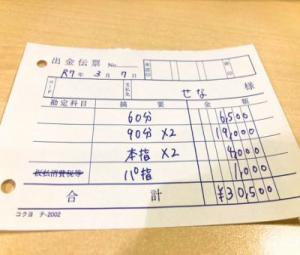 出金伝票 No.
承認印 係印
R7年 3月 7日
コード 支払先 せな 様
勘定科目 摘要 金額
60分 6,500
90分 ×2 19,000
本指 ×2 4,000
パ指 1,000
仮払消費税等
合計 ¥30,500
コクヨ テ-2002